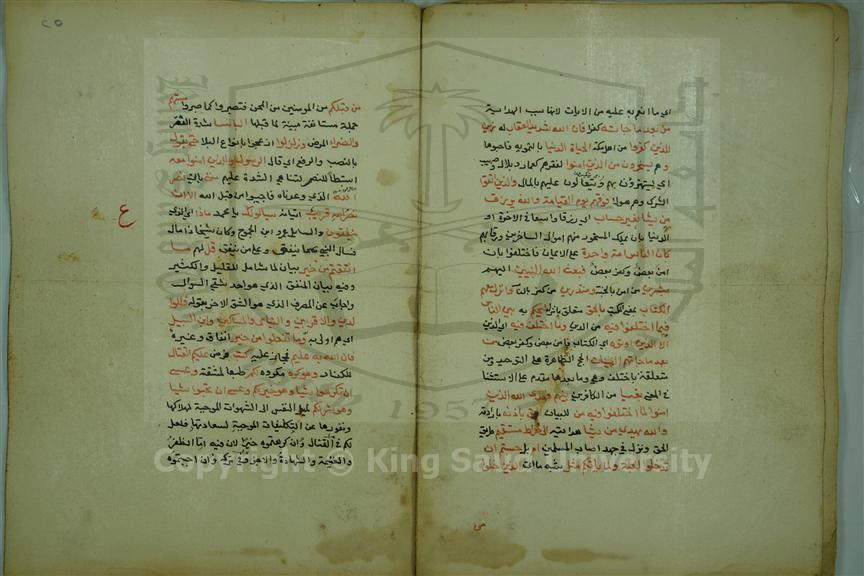 اي ما انعم به عليه من الايات لانها سبب الهداية
من بعد ما جاءته كفرا فان الله شديد العقاب له زين
للذين كفروا من اهل مكة الحياة الدنيا بالتمويه فاحبوها
وهم يسخرون من الذين امنوا لفقرهم كعمار وبلال وصهيب
اي يستهزؤن بهم ويتعالون عليهم بالمال والذين اتقوا
الشرك وهم هولا فوقهم يوم القيامة والله يرزق
من يشا بغير حساب اي رزقا واسعا في الاخرة او
الدنيا بان يملك المسخور منهم اموال الساخرين ورقابهم
كان الناس امة واحدة على الايمان فاختلفوا بان
امن بعض وكفر بعض فبعث الله النبيين اليهم
مبشرين من امن بالجنة ومنذرين من كفر بالنار وانزل معهم
الكتاب بمعنى الكتب بالحق متعلق بانزل ليحكم به بين الناس
فيما اختلفوا فيه من الدين وما اختلف فيه اي الدين
الا الذين اوتوه اي الكتاب فامن بعض وكفر بعض من
بعد ما جاتهم البينات الحجج الظاهرة على التوحيد ومن
متعلقة باختلف وهي وما بعدها مقدم على الاستثنا
في المعنى بغيا من الكافرين بينهم فهدى الله الذين
امنوا لما اختلفوا فيه من للبيان الحق باذنه بارادته
والله يهدي من يشا هدايته الى صراط مستقيم طريق
الحق ونزل في جهد اصاب المسلمين ام بل حسبتم ان
تدخلوا الجنة ولما ياتكم مثل شبه ما اتى الذين خلوا
من
٢٥
من قبلكم من المومنين من المحن فتصبروا كما صبروا مستهم
جملة مستانفة مبينة لما قبلها الباسا شدة الفقر
والضراء المرض وزلزلوا ازعجوا بانواع البلا حتى يقول
بالنصب والرفع اي قال الرسول والذين امنوا معه
استبطا للنصر لتناهي الشدة عليهم متى ياتي نصر
الله الذي وعدناه فاجيبوا من قبل الله الا ان
نصر الله قريب اتيانه يسالونك يا محمد ماذا اي الذي
ينفقون والسايل عمرو ابن الجموح وكان شيخا ذا مال
فسال النبي عما ينفق وعلى من ينفق قل لهم ما
انفقتم من خير بيان لما شامل للقليل والكثير
وفيه بيان المنفق الذي هو احد شقي السوال
واجاب عن المصرف الذي هو الشق الاخر بقوله فللوا
لدين والاقربين واليتامى والمساكين وابن السبيل
اي هم اولى به وما تفعلوا من خير انفاق وغيره
فان الله به عليم فمجاز عليه كتب فرض عليكم القتال
للكفار وهو كره مكروه لكم طبعا لمشقته وعسى
ان تكرهوا شيا وهو خير لكم وعسى ان تحبوا شيا
وهو شر لكم لميل النفس الى الشهوات الموجبة لهلاكها
ونفورها عن التكليفات الموجبة لسعادتها فلعل
لكم في القتال وان كرهتموه خيرا لان فيه اما الظفر
والغنيمة والشهادة والاجر وفي تركه وان احببتموه
ع
Copyright © King Saud University
1957